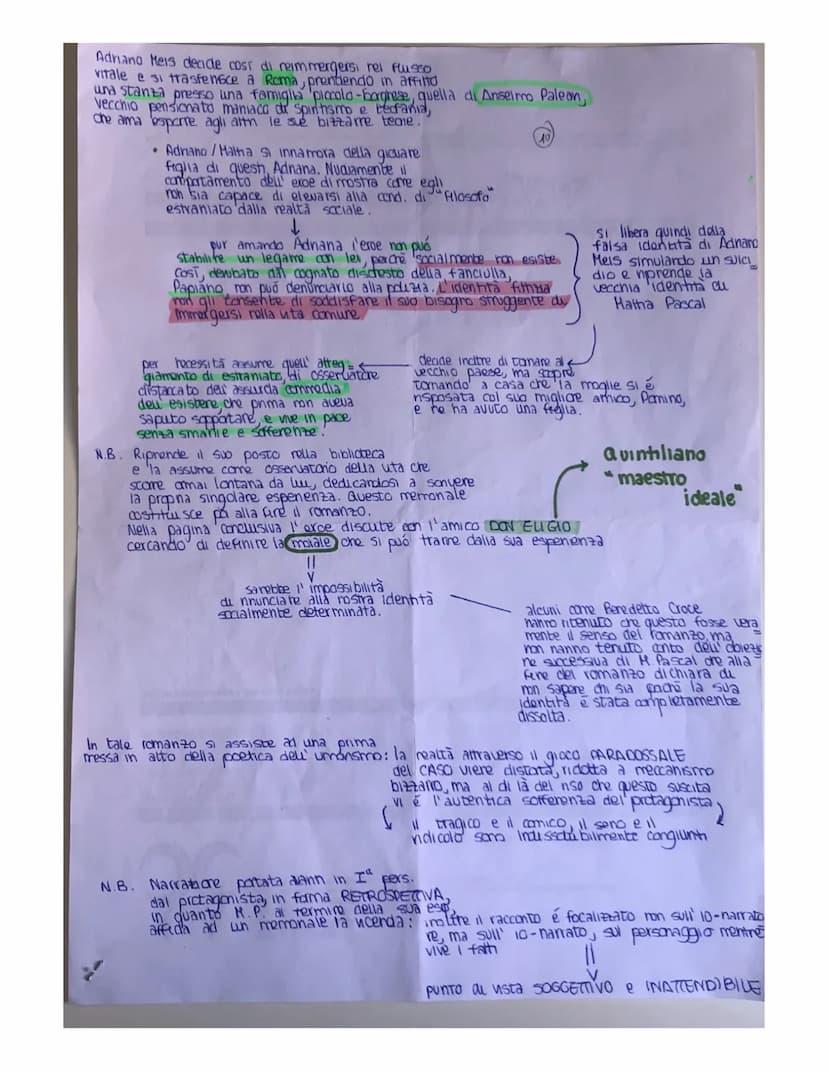 Adriano Meis decide così di reimmergersi nel flusso
vitale e si trasferisce a Roma, prendendo in affitto
una stanza presso una famiglia piccolo-borghese, quella di Anselmo Paleari,
vecchio pensionato maniaco di spiritismo e teosofia,
che ama esporre agli altri le sue bizzarre teorie.
10
• Adriano/Mattia si innamora della giovane
figlia di questi, Adriana. Nuovamente il
comportamento dell'eroe dimostra come egli
non sia capace di elevarsi alla cond. di "filosofo"
estraniato dalla realtà sociale.
↓
pur amando Adriana l'eroe non può
stabilire un legame con lei, perché socialmente non esiste
Così, derubato dal cognato disonesto della fanciulla,
Papiano, non può denunciarlo alla polizia. L'identità fittizia
non gli consente di soddisfare il suo bisogno struggente di
immergersi nella vita comune
si libera quindi della
falsa identità di Adriano
Meis simulando un suici
dio e riprende la
vecchia identità di
Mattia Pascal
decide inoltre di tornare al
vecchio paese, ma scopre
tornando a casa che la moglie si è
risposata col suo migliore amico, Pomino,
e ne ha avuto una figlia.
per necessità assume quell' atteg=
giamento di estraniato, di osservatore
distaccato dell'assurda commedia
dell'esistere, che prima non aveva
saputo sopportare, e vive in pace
senza smanie e sofferenze.
N.B. Riprende il suo posto nella biblioteca
e la assume come osservatorio della vita che
scorre ormai lontana da lui, dedicandosi a scrivere
la propria singolare esperienza. Questo memoriale
costituisce poi alla fine il romanzo.
Nella pagina conclusiva l'eroe discute con l'amico DON ELIGIO
cercando di definire la morale che si può trarre dalla sua esperienza
quintiliano
"maestro
ideale"
sarebbe l'impossibilità
di rinunciare alla nostra identità
socialmente determinata.
alcuni come Benedetto Croce
hanno ritenuto che questo fosse vera
mente il senso del romanzo, ma
non hanno tenuto conto dell'obiezio
ne successiva di M. Pascal che alla
fine del romanzo dichiara di
non sapere chi sia poiché la sua
identità è stata completamente
dissolta.
In tale romanzo si assiste ad una prima
messa in atto della poetica dell'umorismo: la realtà attraverso il gioco PARADOSSALE
del CASO viene distorta, ridotta a meccanismo
bizzarro, ma al di là del riso che questo suscita
vi é l'autentica sofferenza del protagonista
il tragico e il comico, il serio e il
ridicolo sono indissolubilmente congiunti
N.B. Narrazione portata avanti in Iª pers.
dal protagonista, in forma RETROSPETTIVA,
in quanto M.P. al termine della sua esp.
affida ad un memoriale la vicenda: inoltre il racconto é focalizzato non sull' IO-narrato
re, ma sull' IO-narrato, sul personaggio mentre
vive i fatti
punto di vista SOGGETTIVO e INATTENDIBILE